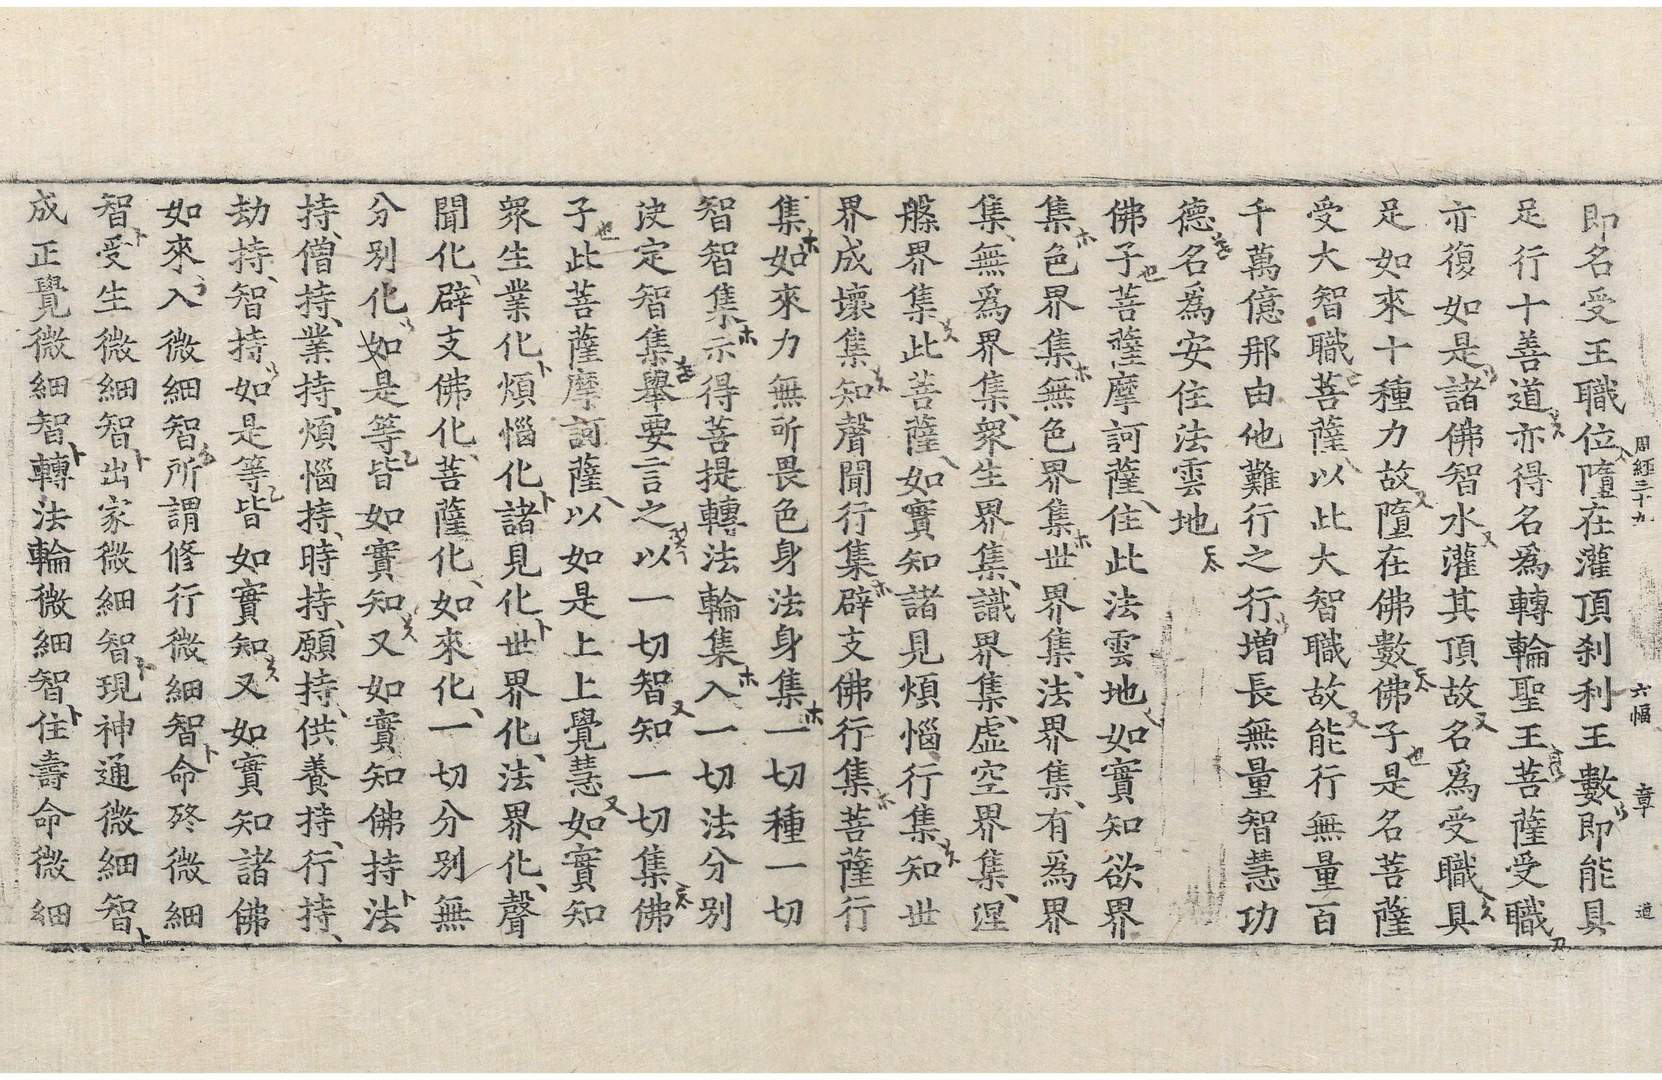 周經三十九 六幅 章 道
即名受王職位墮在灌頂刹利王數即能具
足行十善道亦得名爲轉輪聖王菩薩受職
亦復如是諸佛智水灌其頂故名爲受職具
足如來十種力故墮在佛數佛子是名菩薩
受大智職菩薩以此大智職故能行無量百
千萬億那由他難行之行增長無量智慧功
德名爲安住法雲地
佛子菩薩摩訶薩住此法雲地如實知欲界
集色界集無色界集世界集法界集有爲界
集無爲界集衆生界集識界集虛空界集涅
槃界集此菩薩如實知諸見煩惱行集知世
界成壞集知聲聞行集辟支佛行集菩薩行
集如來力無所畏色身法身集一切種一切
智智集示得菩提轉法輪集入一切法分別
決定智集擧要言之以一切智知一切集佛
子此菩薩摩訶薩以如是上上覺慧如實知
衆生業化煩惱化諸見化世界化法界化聲
聞化辟支佛化菩薩化如來化一切分別無
分別化如是等皆如實知又如實知佛持法
持僧持業持煩惱持時持願持供養持行持
劫持智持如是等皆如實知又如實知諸佛
如來入微細智所謂修行微細智命終微細
智受生微細智出家微細智現神通微細智
成正覺微細智轉法輪微細智住壽命微細